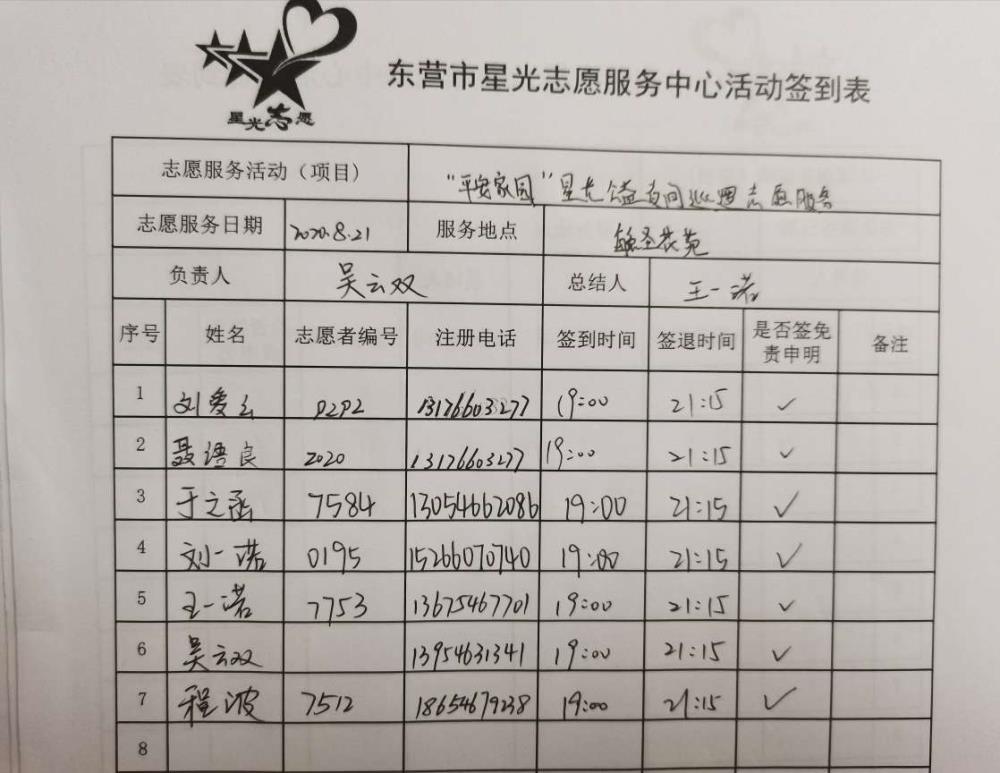 星光志愿
东营市星光志愿服务中心活动签到表
志愿服务活动（项目） “平安家园”星光公益夜间巡逻志愿服务
志愿服务日期 2020.8.21 服务地点 苑
负责人 吴云双 总结人 王一诺
序号 姓名 志愿者编号 注册电话 签到时间 签退时间 是否签免责申明 备注
1 刘爱云 13176603277 19:00 21:15 ✓
2 聂语良 2020 13176603277 19:00 21:15 ✓
3 于之函 7584 13054662086 19:00 21:15 ✓
4 刘一诺 0195 15266070740 19:00 21:15 ✓
5 王一诺 7753 13675467701 19:00 21:15 ✓
6 吴云双 13954631341 19:00 21:15 ✓
7 程波 7512 18654679238 19:00 21:15 ✓
8